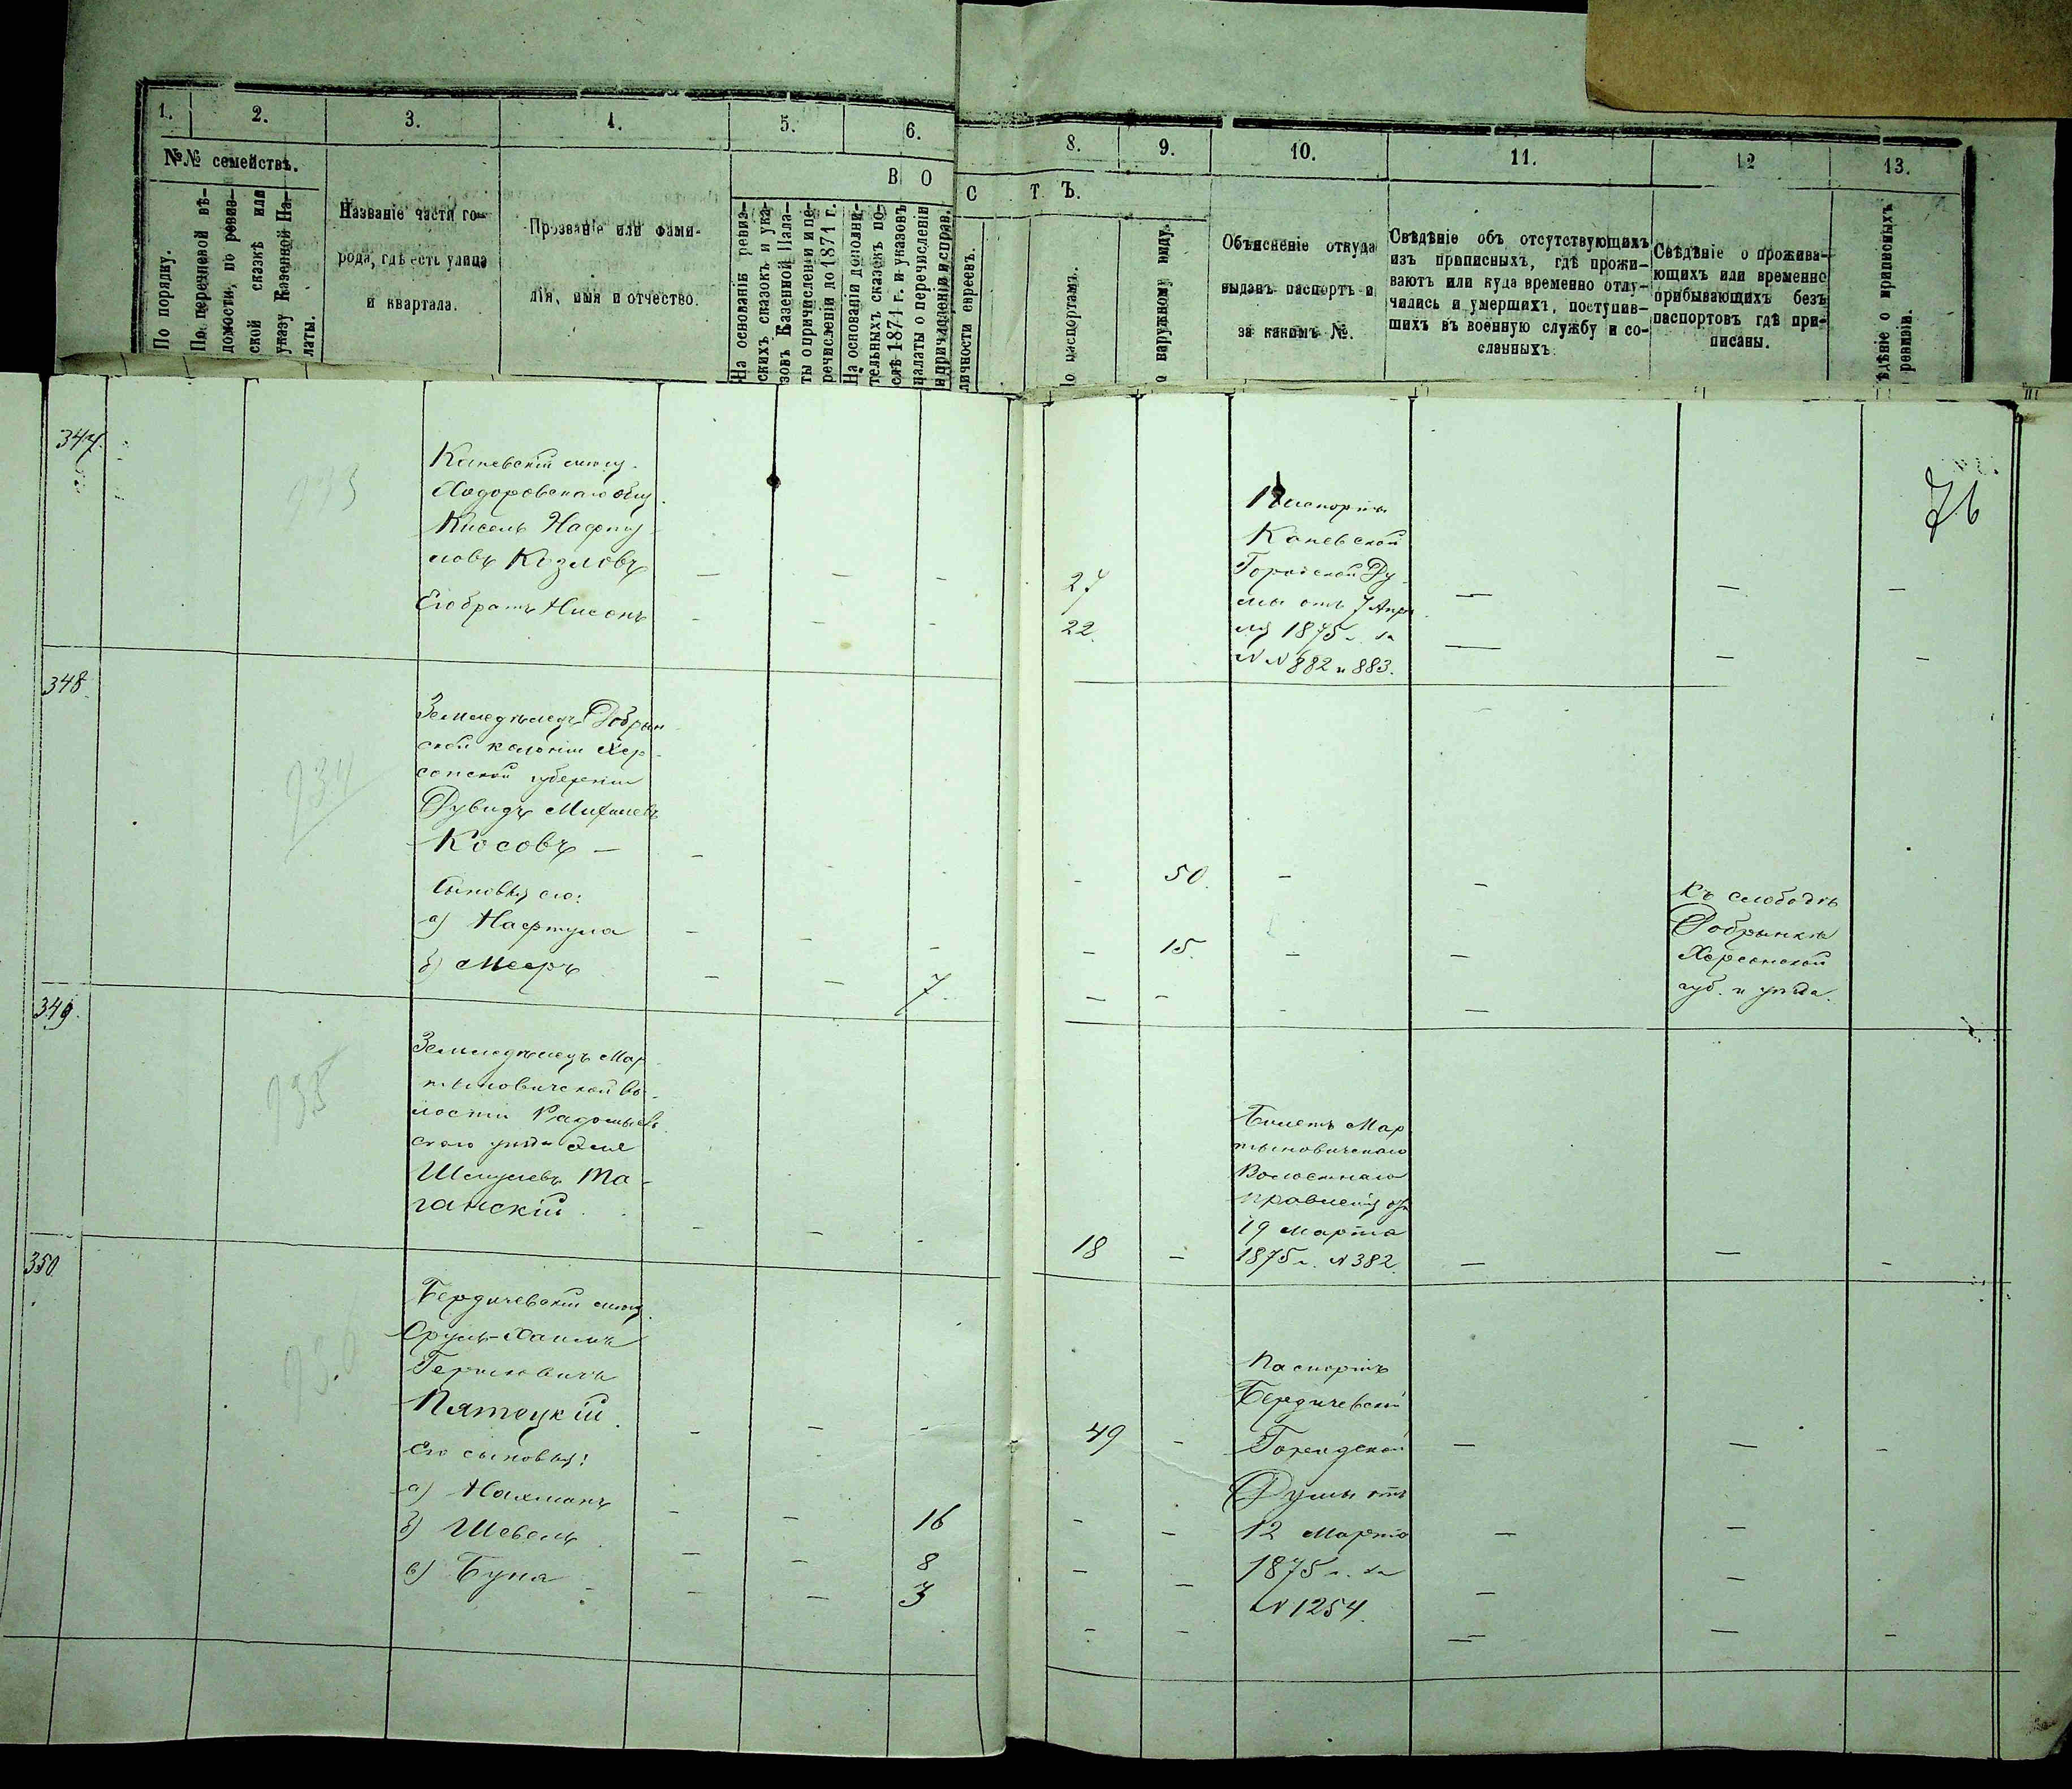 1.
2.
3.
4.
5.
6.
8.
9.
10.
11.
12
13.
№№ семействъ.
В О
С Т Ъ.
По порядку.
По перечневой вѣ-
домости, по ревиз-
ской сказкѣ или
указу Казенной Па-
латы.
Названіе части го-
рода, гдѣ есть улица
и квартала.
Прозваніе или фами-
лія, имя и отчество.
На основаніи ревиз-
скихъ сказокъ и ука-
зовъ Казенной Пала-
ты о причисленіи и пе-
речисленіи до 1871 г.
На основаніи дополни-
тельныхъ сказокъ по-
слѣ 1871 г. и указовъ
палаты о перечисленіи
и причисленіи и справ.
личности евреевъ.
По паспортамъ.
о наружному виду.
Объясненіе откуда
выданъ паспортъ и
за какимъ №.
Свѣдѣніе объ отсутствующихъ
изъ приписныхъ, гдѣ прожи-
ваютъ или куда временно отлу-
чились и умершихъ, поступив-
шихъ въ военную службу и со-
сланныхъ.
Свѣдѣніе о прожива-
ющихъ или временно
прибывающихъ безъ
паспортовъ гдѣ при-
писаны.
ѣдѣніе о приписныхъ
ревизіи.
76
347.
933
Каневскій мѣщ.
Ходоровскаго общ.
Кисель Нафту
ловъ Козловъ — — — 27 — — —
Его братъ Нисонъ - - - 22. — — —
Паспорты
Каневской
Городской Ду
мы отъ 7 Апрѣ
ля 1875 г. за
№№ 882 и 883.
348.
934
Земледѣлецъ Добрин
ской колоніи Хер
сонской губерніи
Дувидъ Михилевъ
Косовъ — - - - - 50. - -
Сыновья его:
а) Нафтула - - - - 15. - -
б) Мееръ - - 7. - - - -
Къ слободѣ
Добринкѣ
Херсонской
губ. и уѣзда.
349.
935
Земледѣлецъ Мар
тыновичской во-
лости Радомысль
скаго уѣзда Эля
Шмулевъ Та-
ганскій - - - 18 - - - -
Билетъ Мар
тыновичскаго
Волостнаго
Правленія отъ
19 Марта
1875 г. № 382.
350.
936
Бердичевскій мѣщ.
Сруль-Хаимъ
Гершковичъ
Пятоцкій. - - - 49 - - - -
Его сыновья:
а) Нахманъ - - 16 - - - -
б) Шевель - - 8 - - - -
в) Буна - - 3 - - - - -
Паспортъ
Бердичевской
Городской
Думы отъ
12 Марта
1875 г. за
№ 1254.